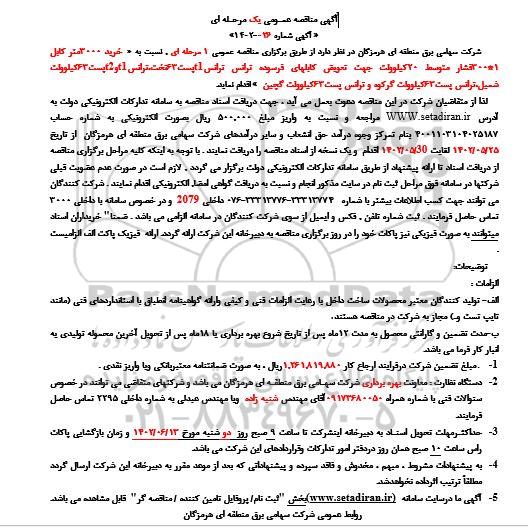 آگهی مناقصه عمومی یک مرحله ای
« آگهی شماره 26-1402»
شرکت سهامی برق منطقه ای هرمزگان در نظر دارد از طریق برگزاری مناقصه عمومی 1 مرحله ای . نسبت به « خرید 3000متر کابل
1*300فشار متوسط 20کیلوولت جهت تعویض کابلهای فرسوده ترانس ترانس1پست63تخت،ترانس1و2پست63کیلوولت
شمیل،ترانس پست63کیلوولت گرکوه و ترانس پست63کیلوولت گچین » اقدام نماید.
لذا از متقاضیان شرکت در این مناقصه دعوت بعمل می آید . جهت دریافت اسناد مناقصه به سامانه تدارکات الکترونیکی دولت به
آدرس WWW.setadiran.ir مراجعه و نسبت به واریز مبلغ 500.000 ریال بصورت الکترونیکی به شماره حساب
4001103104025187 بنام تمرکز وجوه درآمد حق انشعاب و سایر درآمدهای شرکت سهامی برق منطقه ای هرمزگان از تاریخ
1402/05/25 لغایت 1402/05/30 اقدام و یک نسخه از اسناد مناقصه را دریافت نمایند . با توجه به اینکه کلیه مراحل برگزاری مناقصه
از دریافت اسناد تا ارائه پیشنهاد از طریق سامانه تدارکات الکترونیکی دولت برگزار می گردد . لازم است در صورت عدم عضویت قبلی
شرکتها در سامانه فوق مراحل ثبت نام در سایت مذکور انجام و نسبت به دریافت گواهی امضاء الکترونیکی اقدام نمایند . شرکت کنندگان
می توانند جهت کسب اطلاعات بیشتر با شماره 33313774-33313776-076 داخلی 2079 و در خصوص سامانه با داخلی 3000
تماس حاصل فرمایند . ثبت شماره تلفن ، فکس و ایمیل از سوی شرکت کنندگان در سامانه الزامی می باشد . ضمنا" خریداران اسناد
میتوانند به صورت فیزیکی نیز پاکات خود را در روز برگزاری مناقصه به دبیرخانه این شرکت ارائه گردد. ارائه فیزیک پاکت الف الزامیست
.
توضیحات:
الزامات :
الف- تولید کنندگان معتبر محصولات ساخت داخل با رعایت الزامات فنی و کیفی وارائه گواهینامه انطباق با استانداردهای فنی (مانند
تایپ تست و..) مجاز به شرکت در مناقصه هستند.
ب-مدت تضمین و گارانتی محصول به مدت 12ماه پس از تاریخ شروع بهره برداری یا 18ماه پس از تحویل آخرین محموله تولیدی به
انبار کار فرما می باشد.
1- .مبلغ تضمین شرکت درفرایند ارجاع کار 1,261,819,880ریال . به صورت ضمانتنامه معتبربانکی ویا واریز نقدی .
2- دستگاه نظارت : معاونت بهره برداری شرکت سهامی برق منطقه ای هرمزگان می باشد و شرکتهای متقاضی می توانند در خصوص
سئوالات فنی با شماره همراه 09173680050آقای مهندس شنبه زاده ویا مهندس عبدلی به شماره داخلی 2295 تماس حاصل
فرمایند.
3- حداکثرمهلت تحویل اسناد به دبیرخانه اینشرکت تا ساعت 9 صبح روز دو شنبه مورخ 1402/06/13 و زمان بازگشایی پاکات
راس ساعت 10 صبح همان روز دردفتر امور تدارکات وقراردادهای این شرکت می باشد.
4- به پیشنهادات مشروط ، مبهم ، مخدوش و فاقد سپرده و پیشنهاداتی که بعد از موعد مقرر به دبیرخانه این شرکت ارسال گردد
مطلقاً ترتیب اثرداده نخواهدشد.
5- آگهی ما درسایت سامانه (www.setadiran.ir)بخش "ثبت نام/ پروفایل تامین کننده /مناقصه گر" قابل مشاهده می باشد.
روابط عمومی شرکت سهامی برق منطقه ای هرمزگان
ParsNamadData
021-88349670-5